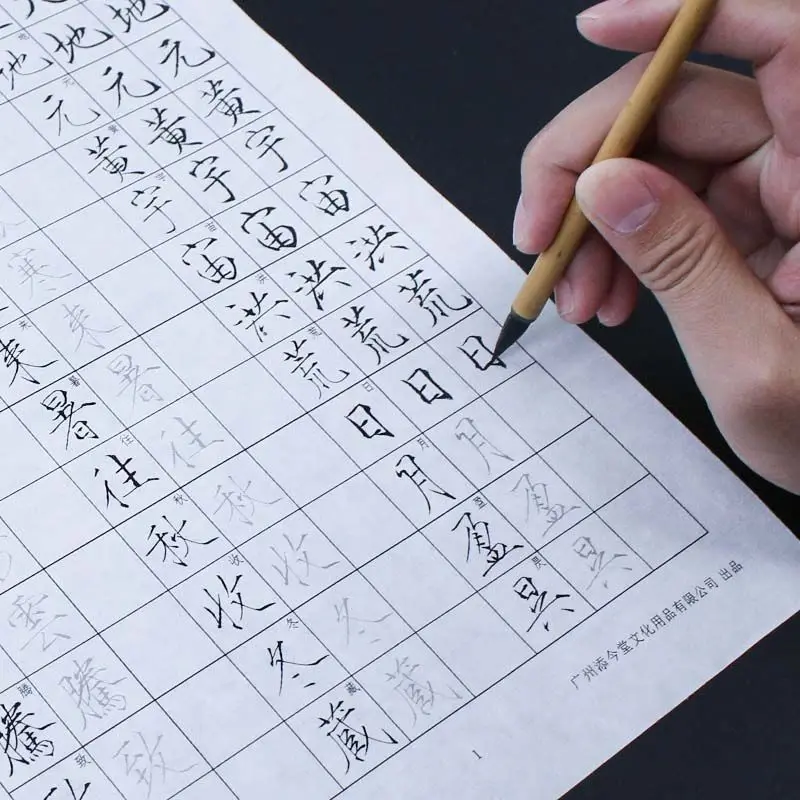 地 地 地
元 元 元
黃 黃 黃
宇 宇 宇
宙 宙 宙
洪 洪 洪
荒 荒 荒
日 日 日
月 月
盈 盈
昃 昃
寒
来 来
暑 暑
往 往
秋 秋
收 收
冬 冬
藏 藏
雲
騰 騰
致 致
广州添今堂文化用品有限公司 出品
1